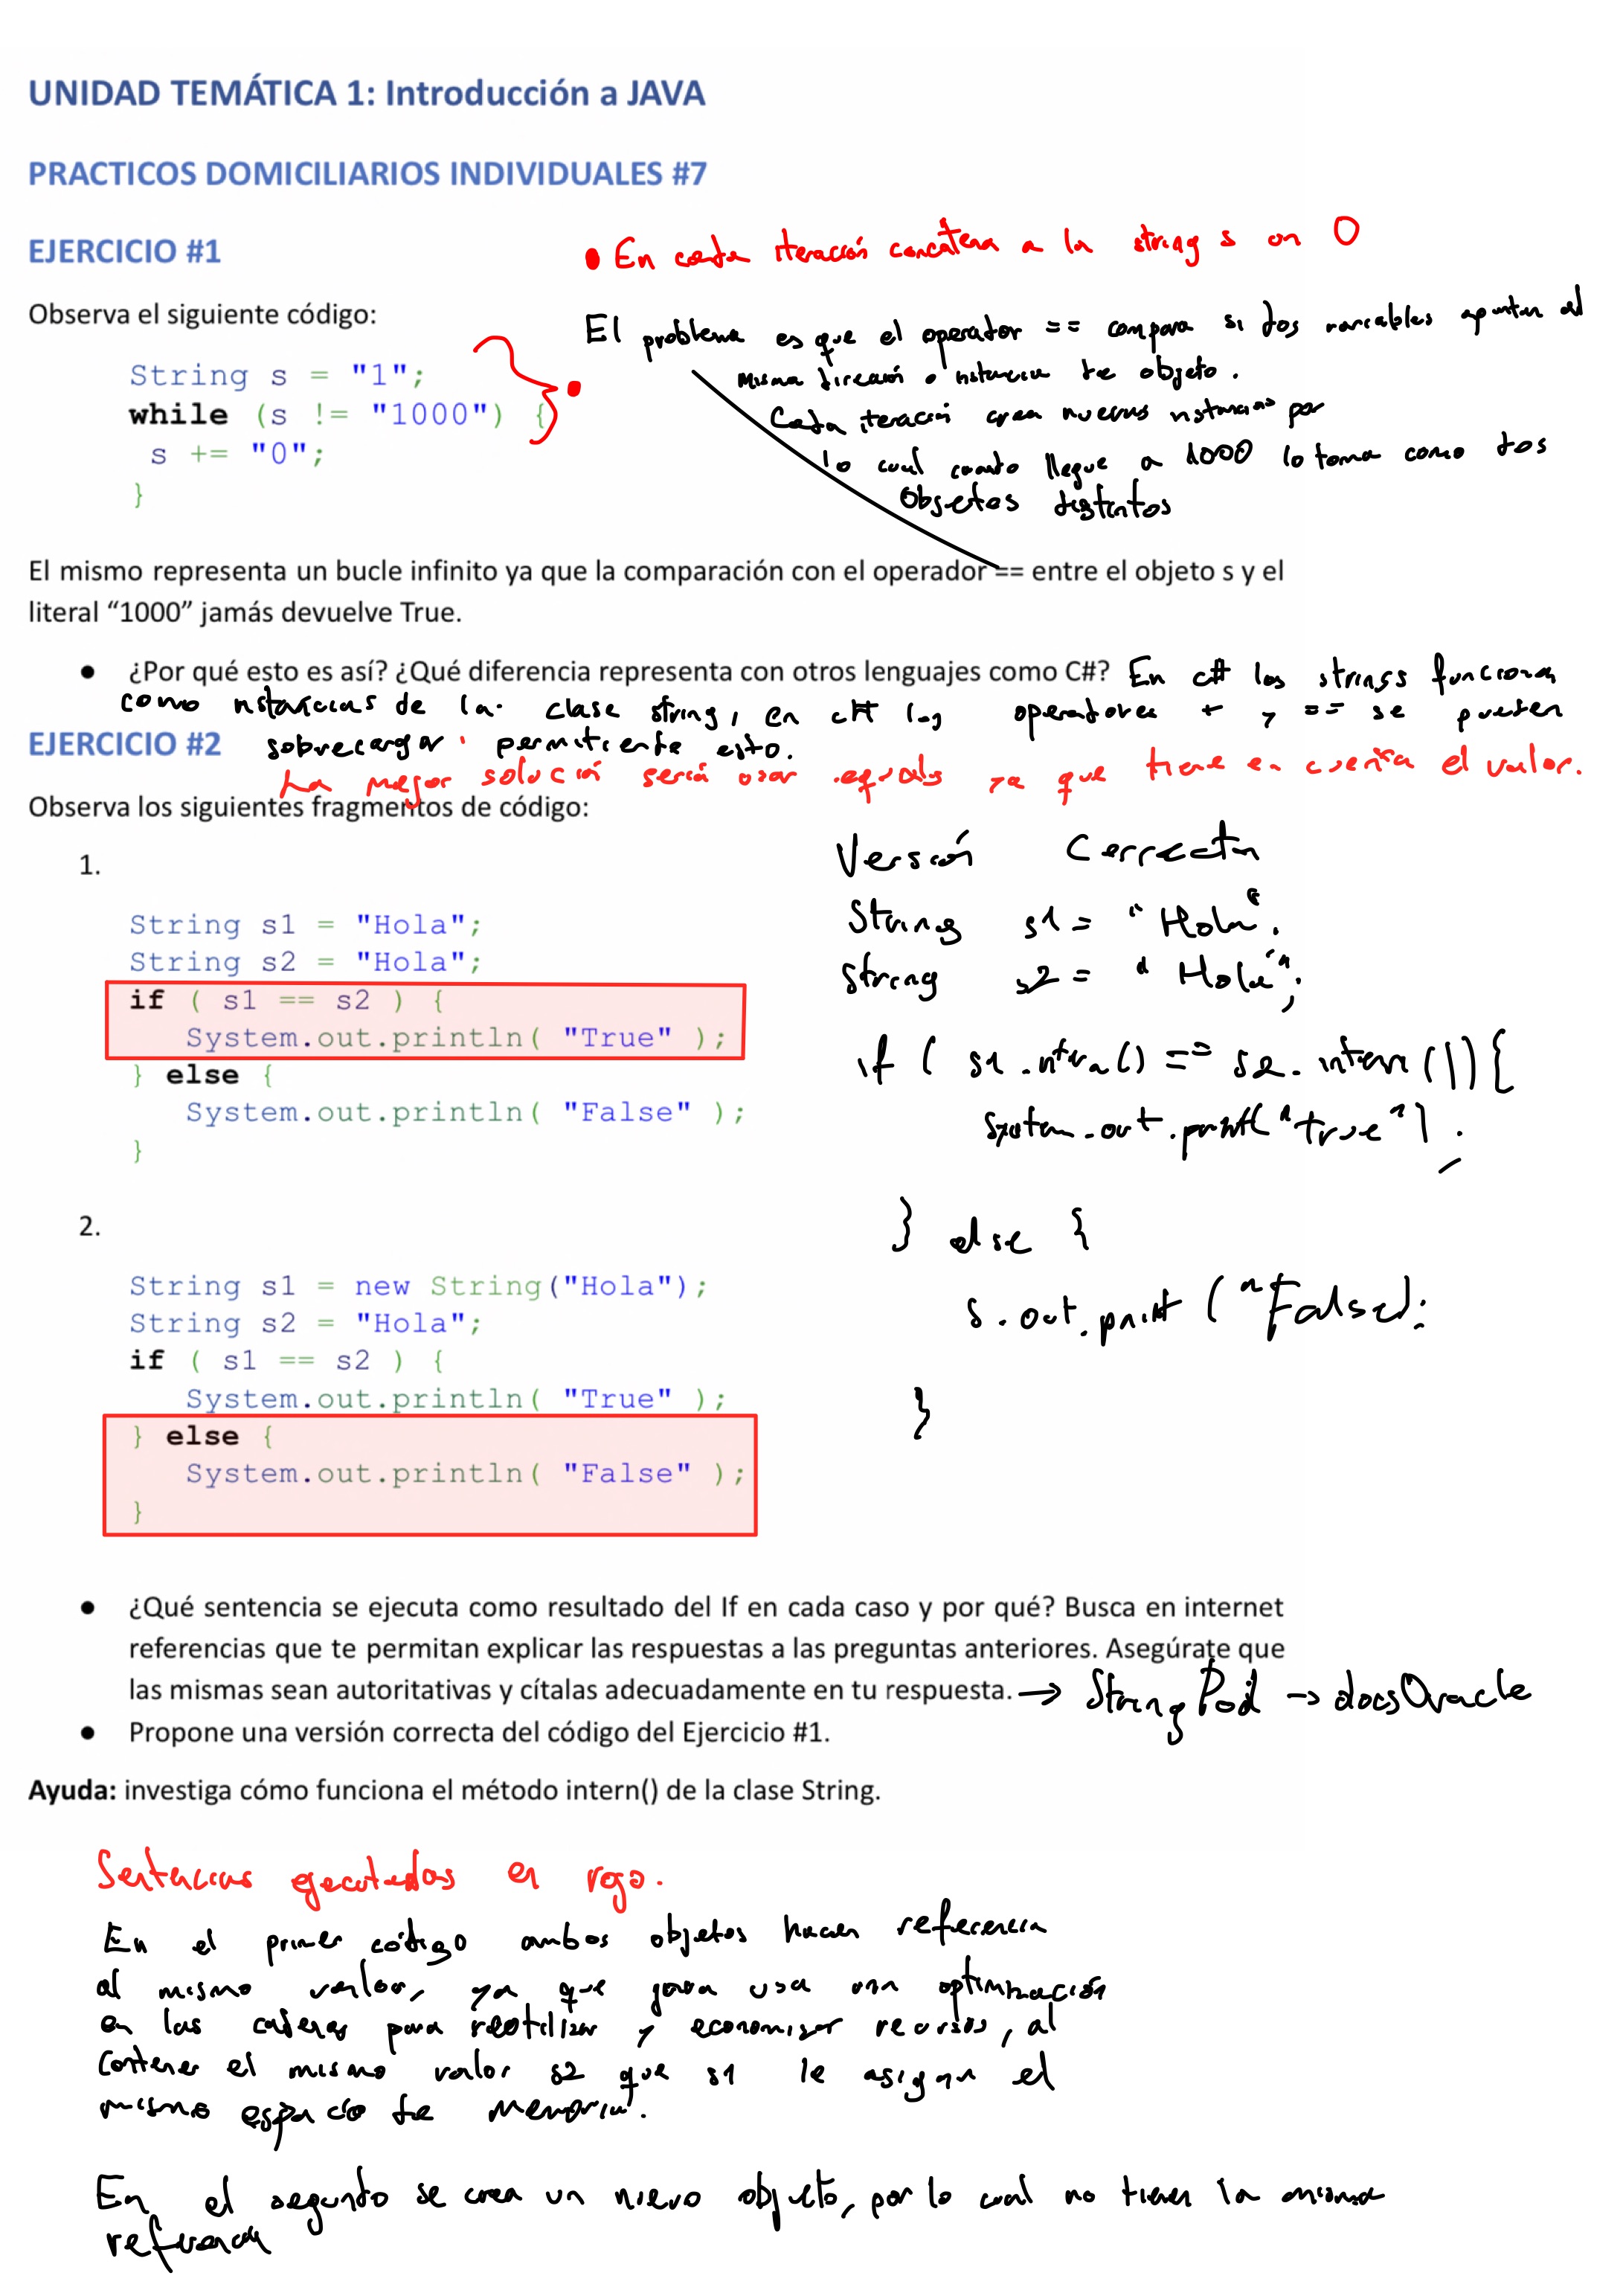 UNIDAD TEMÁTICA 1: Introducción a JAVA
PRACTICOS DOMICILIARIOS INDIVIDUALES #7
EJERCICIO #1
• En cada iteración concatena a la string s un 0
Observa el siguiente código:
String s = "1";
while (s != "1000") {
s += "0";
}
El problema es que el operador == compara si dos variables apuntan al
misma dirección o instancia de objeto.
Cada iteración crea nuevas instancias por
lo cual cuando llegue a 1000 lo toma como dos
objetos distintos
El mismo representa un bucle infinito ya que la comparación con el operador == entre el objeto s y el
literal “1000” jamás devuelve True.
• ¿Por qué esto es así? ¿Qué diferencia representa con otros lenguajes como C#? En c# los strings funcionan
como instancias de la clase string, en c# los operadores + y == se pueden
sobrecargar permitiendo esto.
La mejor solución sería usar .equals ya que tiene en cuenta el valor.
EJERCICIO #2
Observa los siguientes fragmentos de código:
1.
String s1 = "Hola";
String s2 = "Hola";
if ( s1 == s2 ) {
System.out.println( "True" );
} else {
System.out.println( "False" );
}
Versión Correcta
String s1 = "Hola".
String s2 = "Hola";
if ( s1.intern() == s2.intern()){
System.out.print("true");
} else {
s.out.print ("False);
}
2.
String s1 = new String("Hola");
String s2 = "Hola";
if ( s1 == s2 ) {
System.out.println( "True" );
} else {
System.out.println( "False" );
}
• ¿Qué sentencia se ejecuta como resultado del If en cada caso y por qué? Busca en internet
referencias que te permitan explicar las respuestas a las preguntas anteriores. Asegúrate que
las mismas sean autoritativas y cítalas adecuadamente en tu respuesta. → String Pool → docsOracle
• Propone una versión correcta del código del Ejercicio #1.
Ayuda: investiga cómo funciona el método intern() de la clase String.
Sentencias ejecutadas en rojo.
En el primer código ambos objetos hacen referencia
al mismo valor, ya que java usa una optimización
en las cadenas para reutilizar y economizar recursos, al
contener el mismo valor s2 que s1 le asigna el
mismo espacio de memoria.
En el segundo se crea un nuevo objeto, por lo cual no tienen la misma
referencia